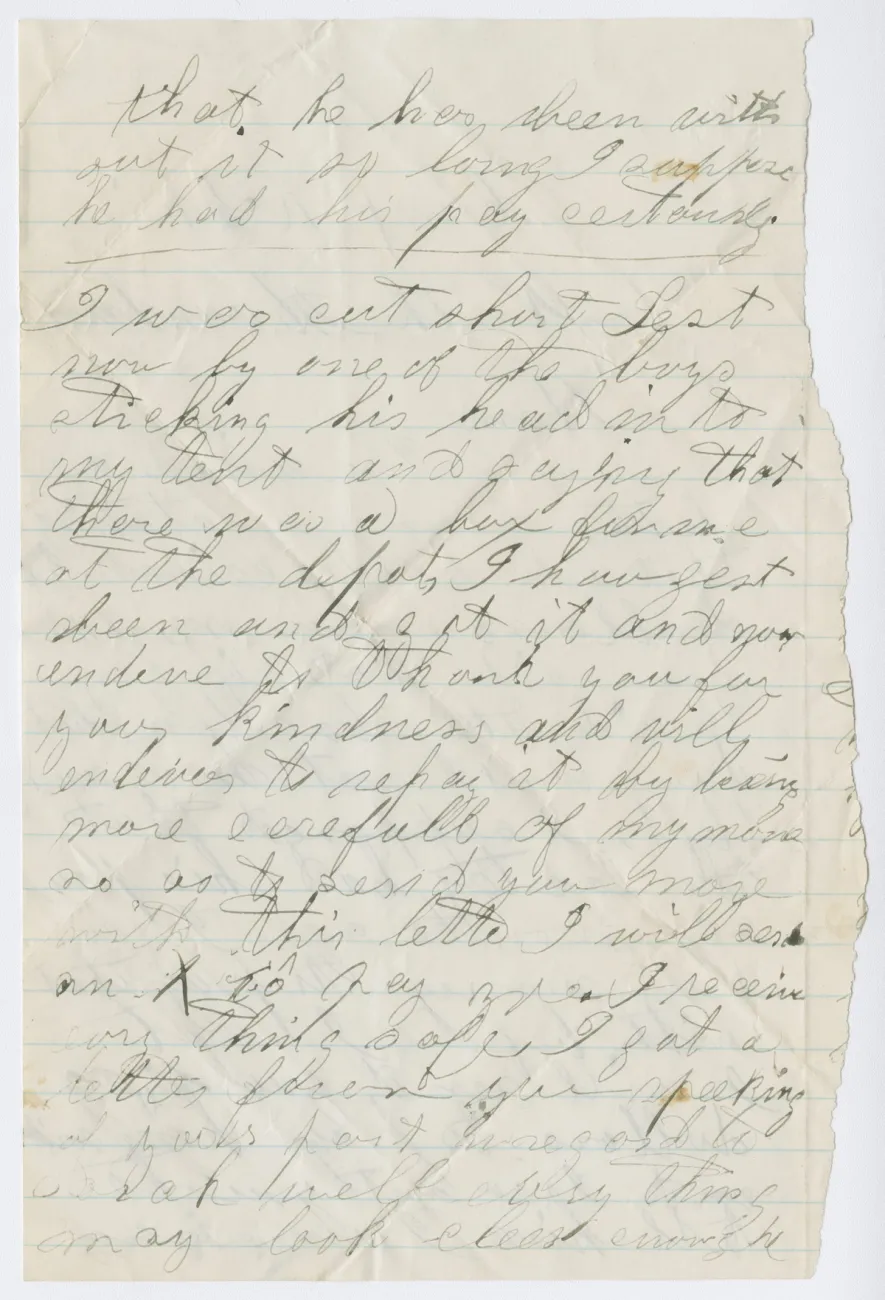 that he has been with
out it so long I suppose
he had his pay certainly
I was cut short Jest
now by one of the boys
sticking his head in to
my tent and saying that
there was a box for me
at the depot, I hav gest
been and got it and now
endeve to Thank you for
your kindness and will
endever to repay it by being
more cerefull of my mone
so as to send you more
with this letter I will
to pay I receive
every thing safe, I got a
letter from you speeking
of yours part in regard to
Sarah well every thing
may look cleer enough